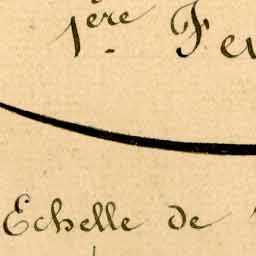 1ère Fe
Echelle de